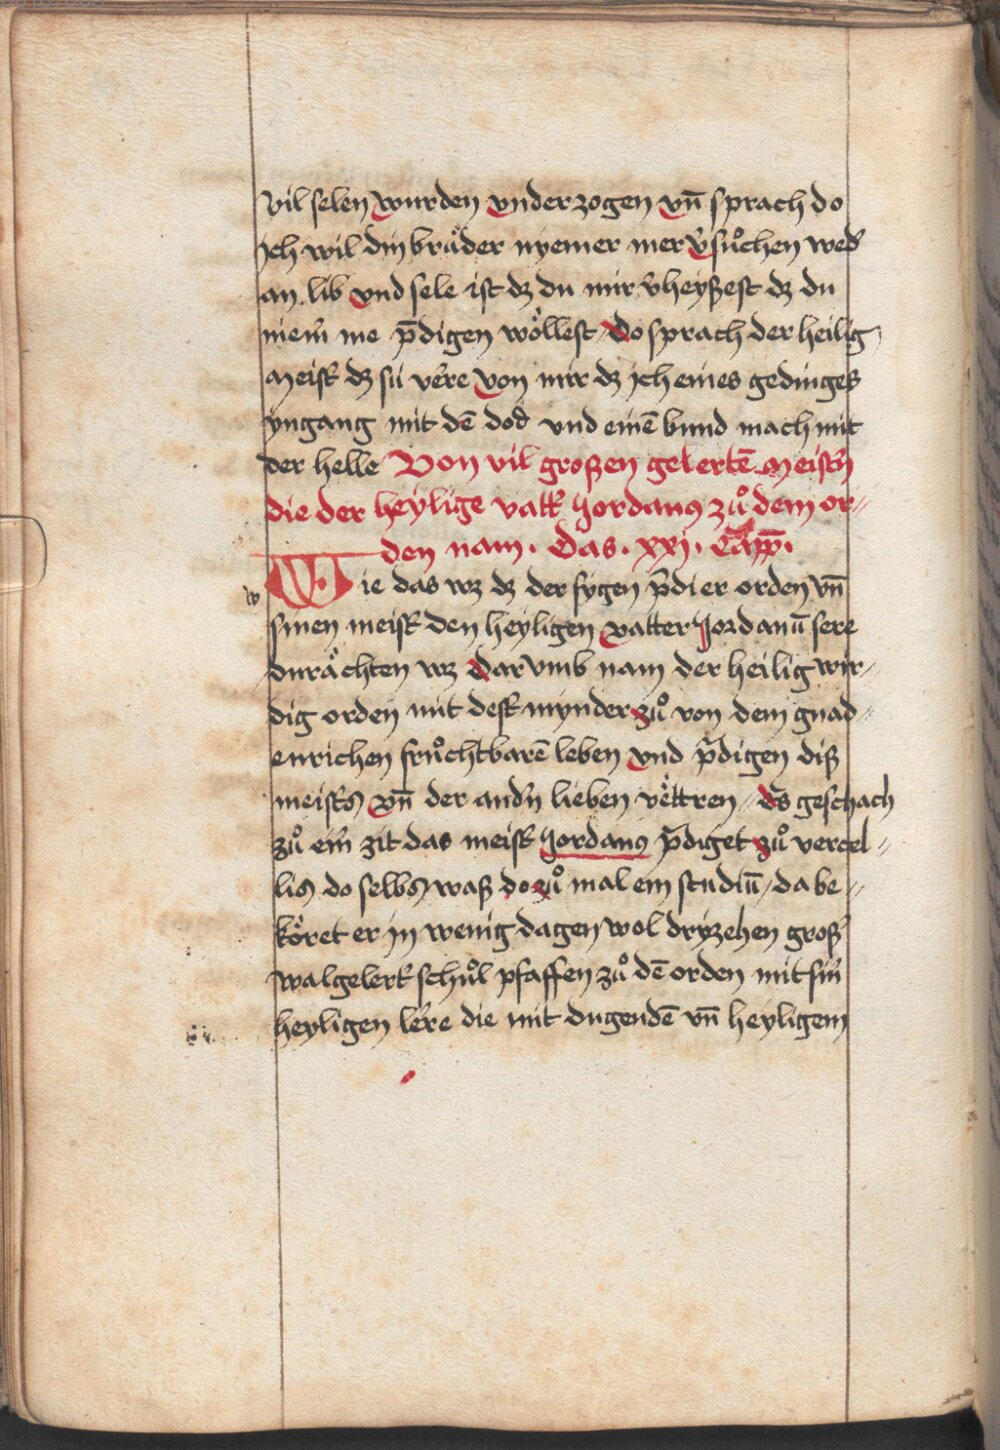 vil selen wurden vnderzogen vn̄ sprach do
jch wil din brůder nyemer mer v̾sůchen wed̾
an lib vnd sele ist dz du mir v̾heyßest dz du
niem̾ me p̄digen wöllest do sprach der heilig
meist̾ dz sü vere von mir dz jch eines gedinges
yngang mit dē dod vnd einē bund mach mit
der helle Von vil großen gelertē meist̾n
die der heylige vatt̾ Jordanꝯ zů dem or⸗
den nam. Das. xxj. Capp̄.
w
Wie das wz dz der fygen p̄di er orden vn̄
sinen meist̾ den heyligen vatter Jordanū sere
durächten wz Dar vmb nam der heilig wir⸗
dig orden nüt dest̾ mynder zů von dem gnad⸗
enrichen frůchtbarē leben vnd p̄digen diß
meist̾s vn̄ der and̾n lieben vëttren Es geschach
zů ein̾ zit das meist̾ Jordanꝯ p̄diget zů vercel⸗
lis do selbs waß do zů mal ein studiū da be⸗
köret er jn wenig dagen wol dryzehen groß̾
walgelert̾ schůl pfaffen zů dē orden mit sin̾
heyligen lere die mit dugendē vn̄ heyligem